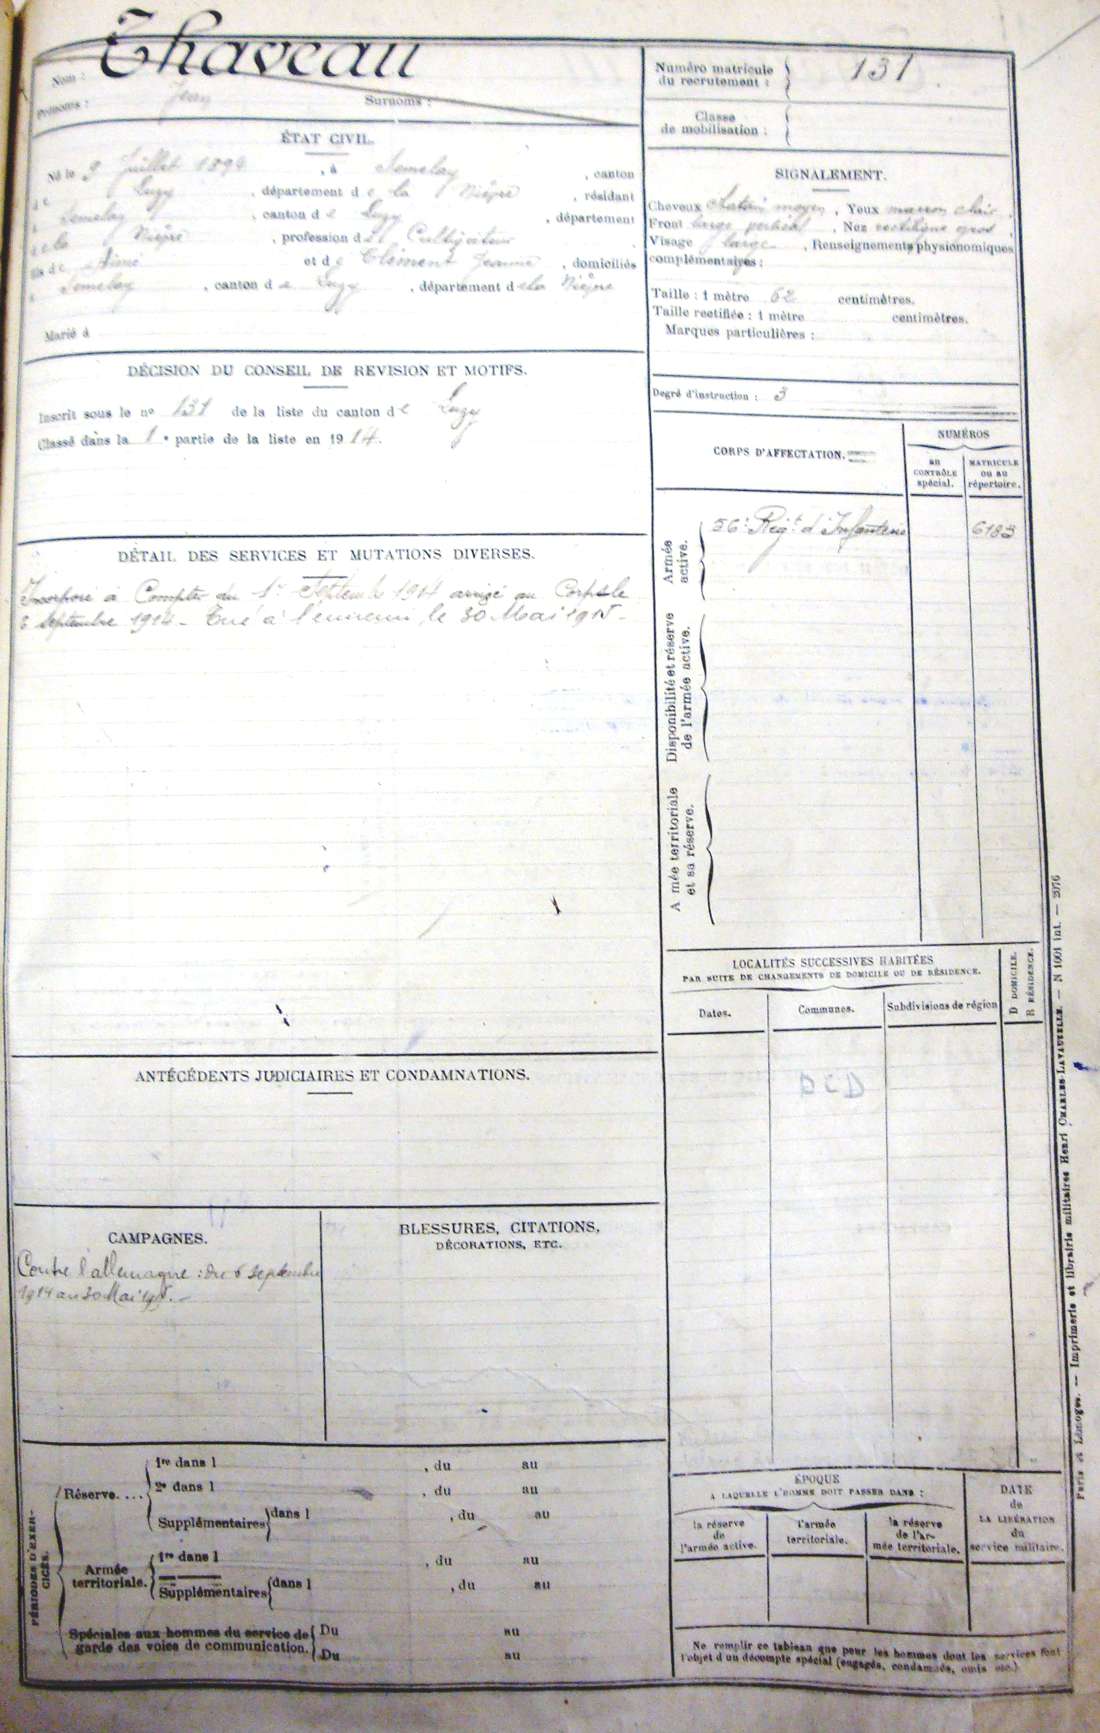 Nom : Thaveau
Prénoms : Jean Surnoms :
ÉTAT CIVIL.
Né le 9 Juillet 1894, à Semelay, canton
de Luzy, département de la Nièvre, résidant
Semelay, canton de Luzy, département
de la Nièvre, profession de Cultivateur
fils de Aimé et de Clément Jeanne, domiciliés
à Semelay, canton de Luzy, département de la Nièvre
Marié à
DÉCISION DU CONSEIL DE REVISION ET MOTIFS.
Inscrit sous le n° 131 de la liste du canton de Luzy
Classé dans la 1e partie de la liste en 1914.
DÉTAIL DES SERVICES ET MUTATIONS DIVERSES.
Incorporé à Compter du 1er Septembre 1914 arrivé au Corps le
Septembre 1914 - Tué à l'ennemi, le 30 Mai 1915 -
ANTÉCÉDENTS JUDICIAIRES ET CONDAMNATIONS.
CAMPAGNES.
Contre l'allemagne : du 6 septembre
1914 au 30 Mai 1915. -
BLESSURES, CITATIONS,
DÉCORATIONS, ETC.
PÉRIODES D'EXER-
CICES.
Réserve....
1re dans l , du au
2e dans l , du au
Supplémentaires dans l , du au
Armée
territoriale.
1re dans l , du au
Supplémentaires dans l , du au
Spéciales aux hommes du service de Du au
garde des voies de communication. Du au
Numéro matricule
du recrutement : 131
Classe
de mobilisation :
SIGNALEMENT.
Cheveux chatain moyen, Yeux marron clair,
Front large, Nez rectiligne gros,
Visage large, Renseignements physionomiques
complémentaires :
Taille : 1 mètre 62 centimètres.
Taille rectifiée : 1 mètre centimètres.
Marques particulières :
Degré d'instruction : 3
CORPS D'AFFECTATION.
NUMÉROS
au
CONTRÔLE
spécial.
MATRICULE
ou au
répertoire.
Armée
active.
56e Régt d'Infanterie 6183
Disponibilité et réserve
de l'armée active.
A mée territoriale
et sa réserve.
LOCALITÉS SUCCESSIVES HABITÉES
PAR SUITE DE CHANGEMENTS DE DOMICILE OU DE RÉSIDENCE.
D DOMICILE.
R RÉSIDENCE.
Dates. Communes. Subdivisions de région
DCD
ÉPOQUE
A LAQUELLE L'HOMME DOIT PASSER DANS :
la réserve
de
l'armée active.
l'armée
territoriale.
la réserve
de l'ar-
mée territoriale.
DATE
de
LA LIBÉRATION
du
service militaire.
Ne remplir ce tableau que pour les hommes dont les services font
l'objet d'un décompte spécial (engagés, condamnés, omis etc.)
Paris et Limoges. — Imprimerie et librairie militaires Henri CHARLES-LAVAUZELLE. — N 1001 int. — 2076